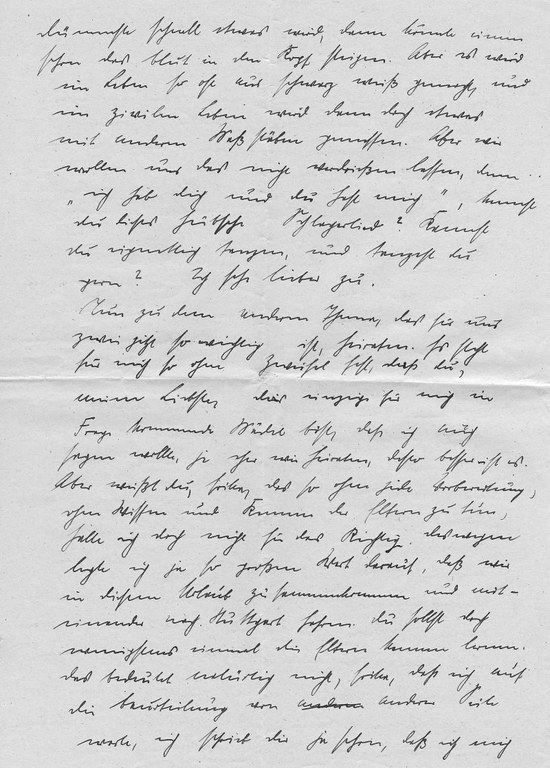 schnell etwas wird, dann könnte einem
schon das Blut in den Kopf steigen. Aber es wird
im Leben so oft aus schwarz weiß gemacht, und
im zivilen Leben wird dann doch etwas
mit anderen Maßstäben gemessen. Aber wir
wollen uns das nicht verdrießen lassen, denn ..
„ich hab dich und du hast mich", kennst
du dieses hübsche Schlagerlied? Kannst
du eigentlich tanzen, und tanzst du
gern? Ich sehe lieber zu.
Nun zu dem anderen Thema, das für uns
zwei jetzt so wichtig ist, heiraten. Es steht
für mich so ohne Zweifel fest, daß du,
meine Liebste, das einzige für mich in
Frage kommende Mädel bist, daß ich auch
sagen wollte, je eher wir heiraten, desto besser ist es.
Aber weißt du, Erika, das so ohne jede Vorbereitung,
ohne Wissen und Kennen der Eltern zu tun,
halte ich doch nicht für das Richtige. deswegen
legte ich ja so großen Wert darauf, daß wir
in diesem Urlaub zusammenkommen und mit-
einander nach Stuttgart fahren. du sollst doch
wenigstens einmal die Eltern kennen lernen.
das bedeutet natürlich nicht, Erika, daß ich auf
die Beurteilung von anderer Seite
warte, ich schrieb dir ja schon, daß ich mich